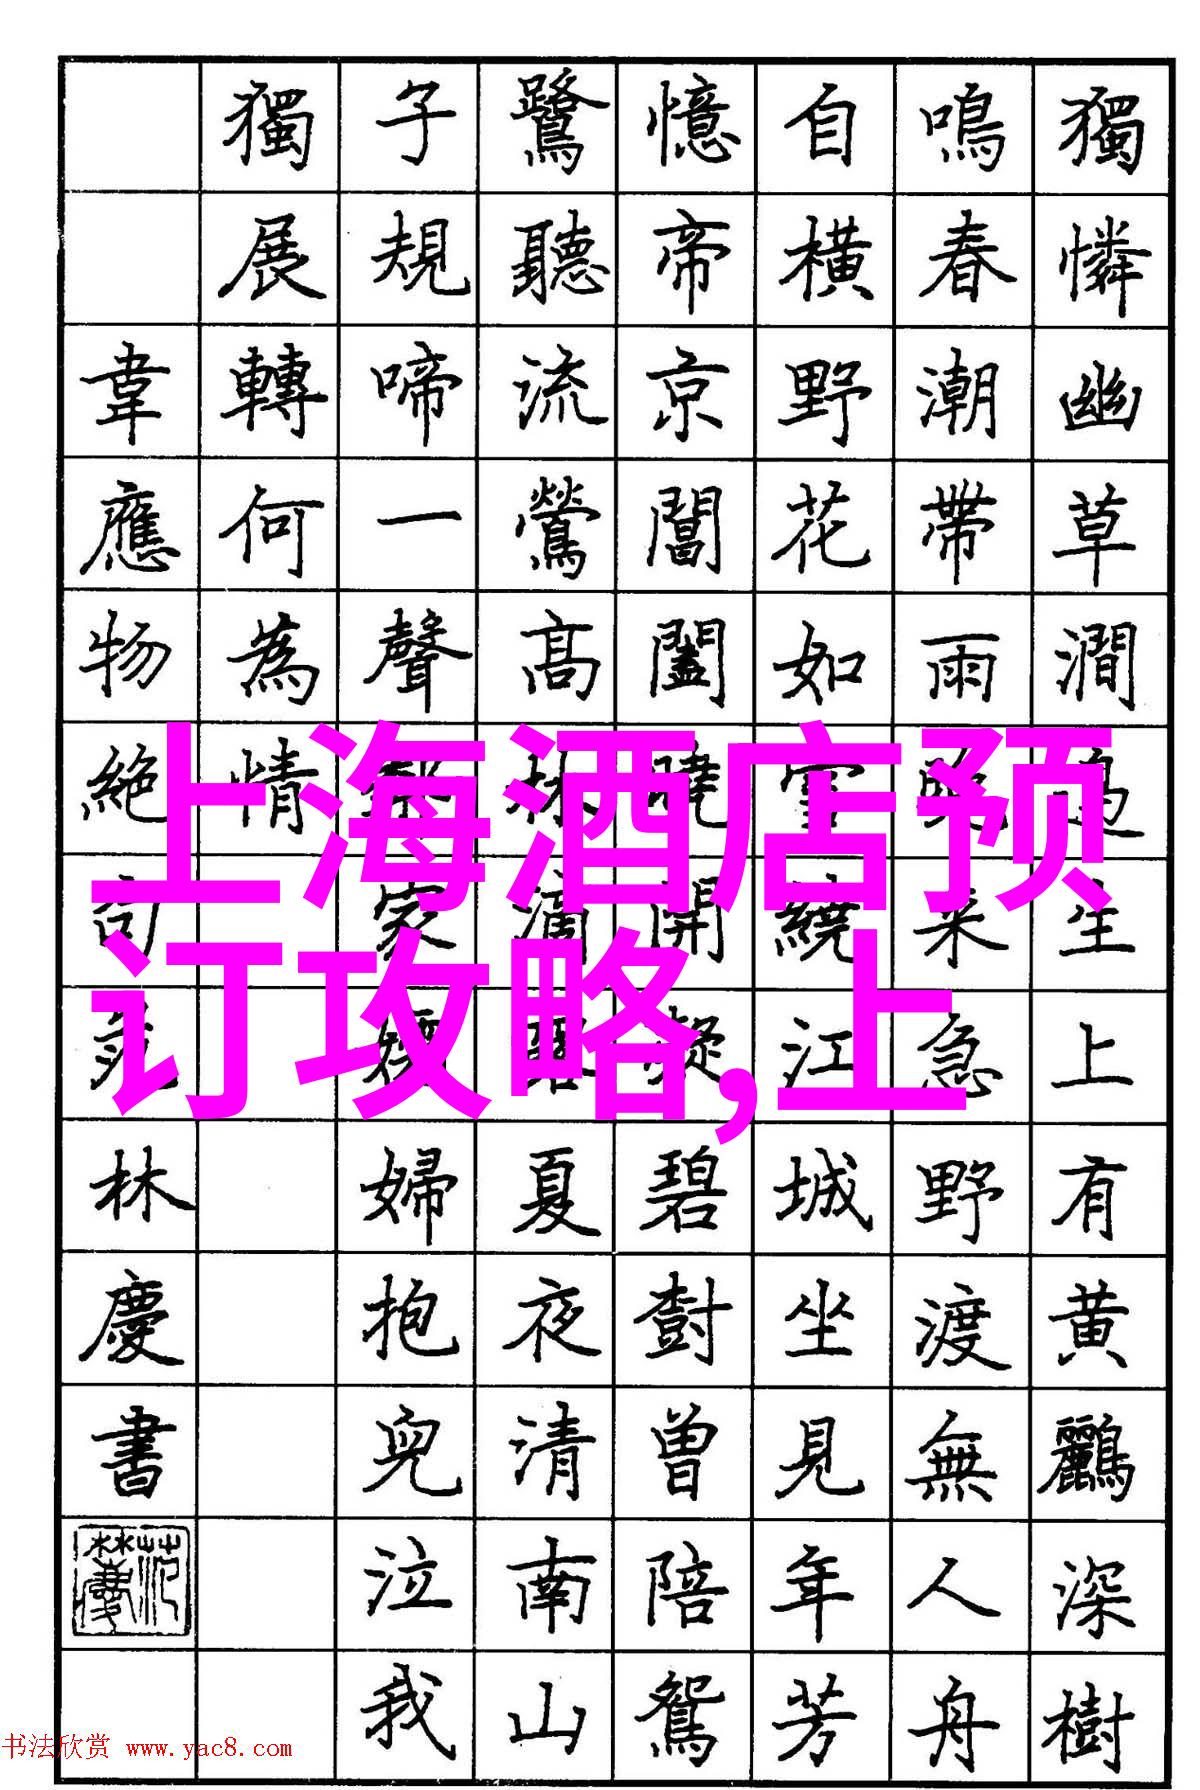 獨憐幽草澗邊生上有黄鸝深樹
鳴春潮帶雨晚来急野渡無人舟
自橫野花如雪繞江城坐見年芳
憶帝京閶闔曉開凝碧樹曾陪鴛
鷺聽流鶯高林滴露夏夜清南山
子規啼一聲鄰家孀婦抱兒泣我
獨展轉何為情
韋應物絕句范林慶書
上海酒店预
订攻略,上
书法欣赏 www.yac8.com